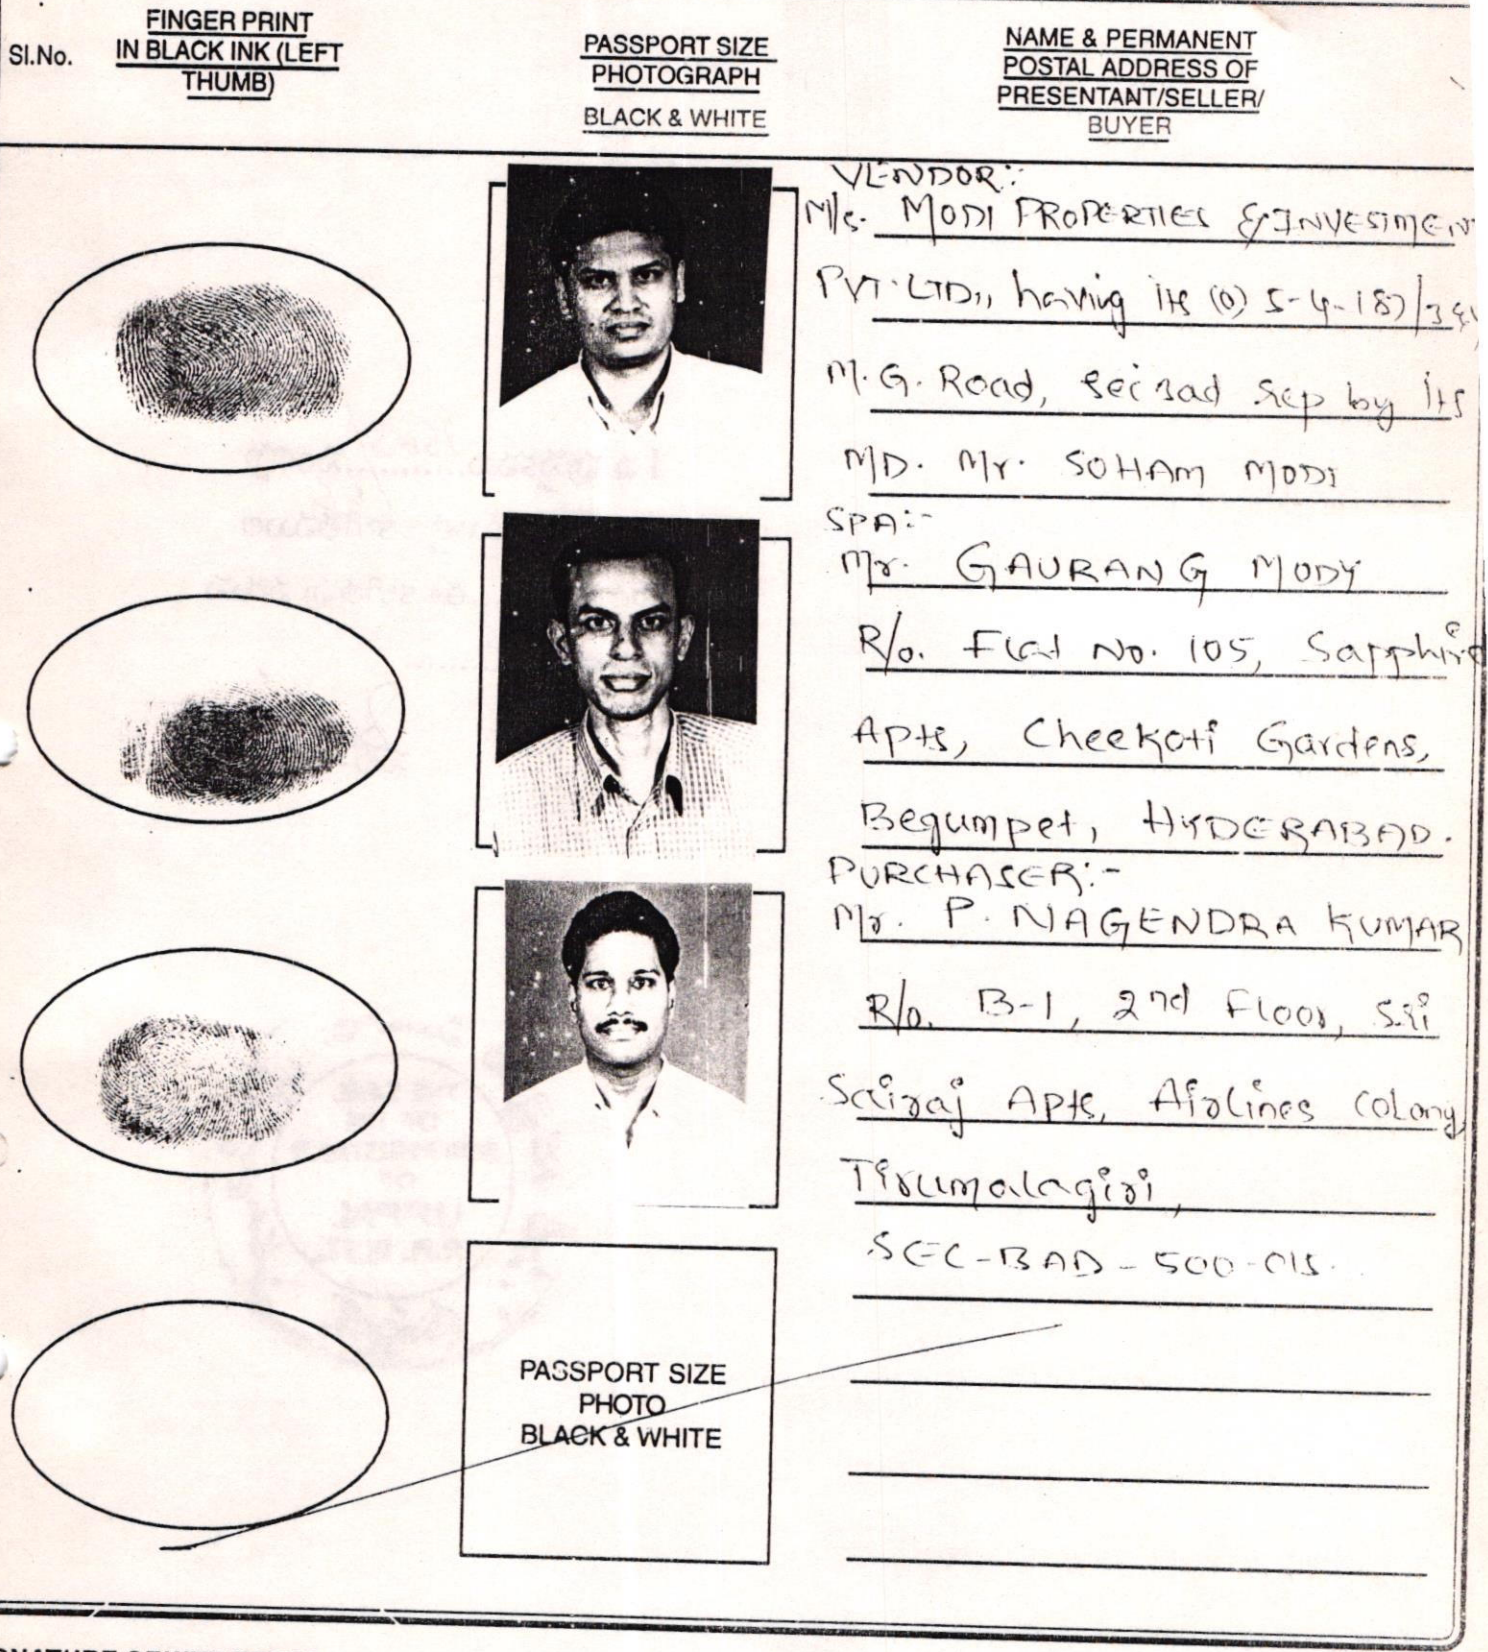 Sl.No.
FINGER PRINT
IN BLACK INK (LEFT
THUMB)
PASSPORT SIZE
PHOTOGRAPH
BLACK & WHITE
NAME & PERMANENT
POSTAL ADDRESS OF
PRESENTANT/SELLER/
BUYER
VENDOR:-
M/s. MODI PROPERTIES & INVESTMEN
PVT. LTD., having its (O) 5-4-187/3&
M.G. Road, Sec'bad rep by its
MD. Mr. SOHAM MODI
SPA:-
Mr. GAURANG MODY
R/o. Flat No. 105, Sapphire
Apts, Cheekoti Gardens,
Begumpet, HYDERABAD.
PURCHASER:-
Mr. P. NAGENDRA KUMAR
R/o. B-1, 2nd Floor, Sri
Sairaj Apts, Airlines Colony,
Tirumalagiri,
SEC-BAD-500-015.
PASSPORT SIZE
PHOTO
BLACK & WHITE